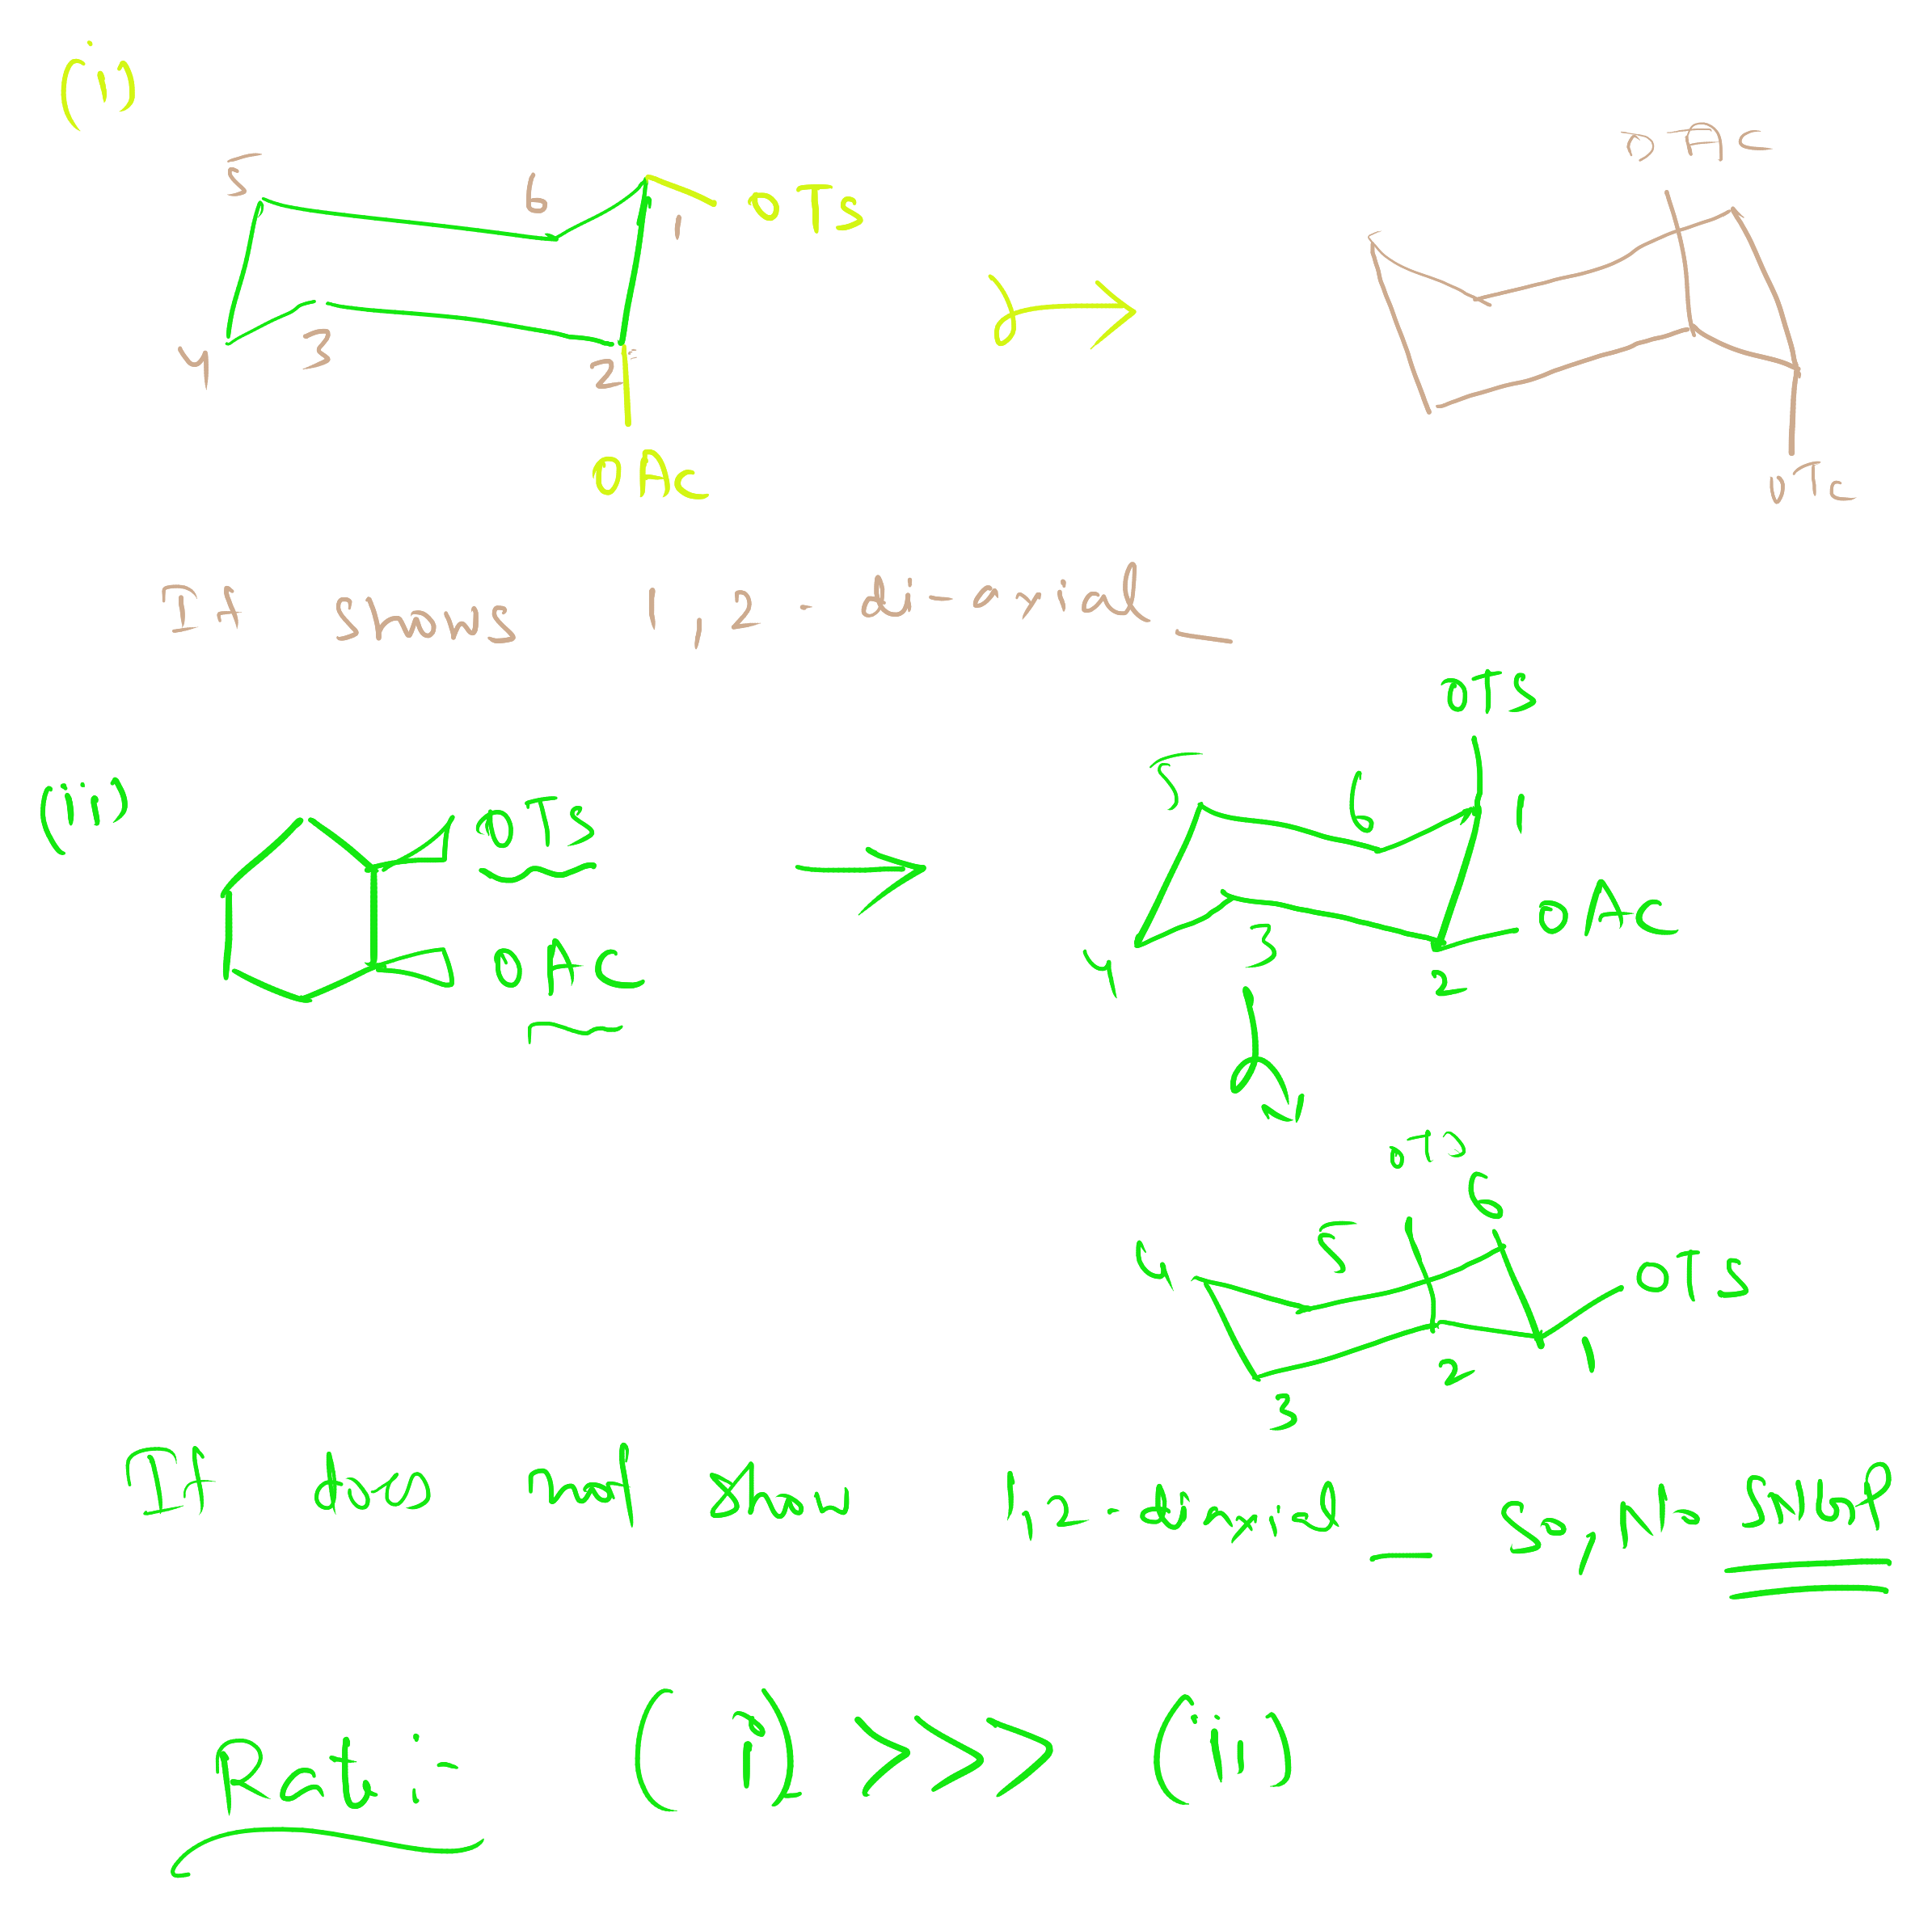 (i)
5 6 1 OTs
4 3 2
OAc
OAc
OTs
It shows 1,2-di-axial_
(ii)
OTs
OAc
OTs
5 6 1
OAc
4 3 2
OTs
4 5 6 OTs
3 2 1
It does not show 1,2-diaxial_ so, No SNGP
Rate:- (i) >>> (ii)